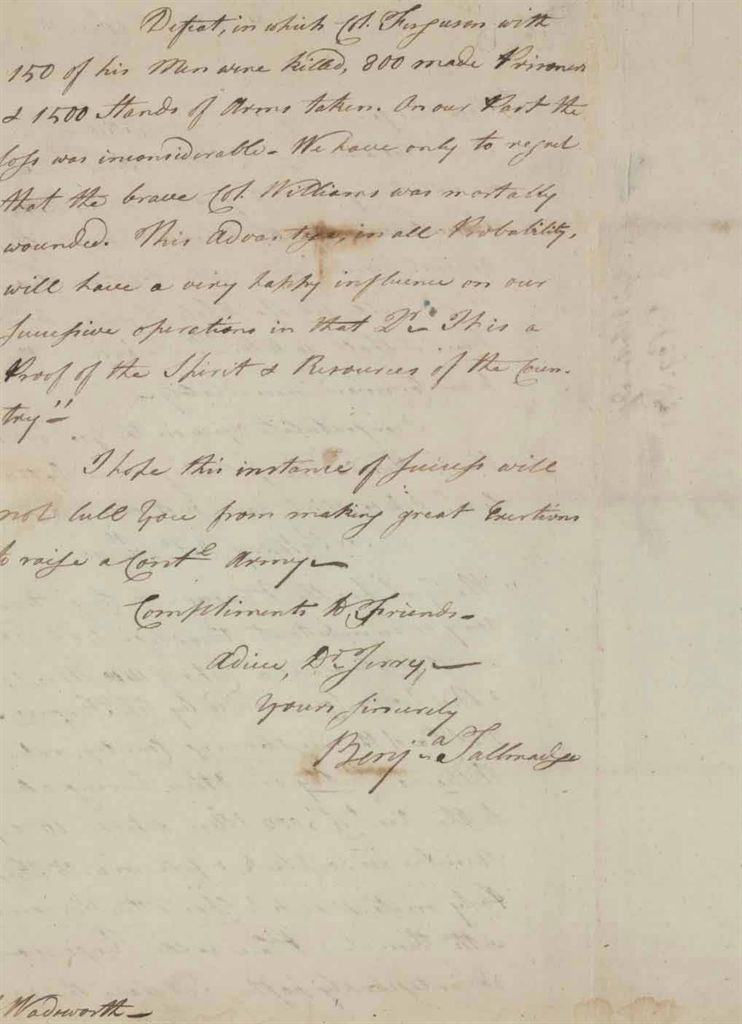 Defeat, in which Col. Ferguson with
150 of his Men were killed, 800 made Prisoners
& 1500 Stands of Arms taken. On our Part the
loss was inconsiderable - We have only to regret
that the brave Col. Williams was mortally
wounded. This Advantage, in all Probability,
will have a very happy influence on our
successive operations in that Dr. This a
Proof of the Spirit & Resources of the Coun-
try"
I hope this instance of success will
not lull you from making great Exertions
to raise a Contl Army -
Compliments to Friends -
Adieu, Dr Jerry, -
Yours sincerely
Benja Tallmadge
Wadsworth -